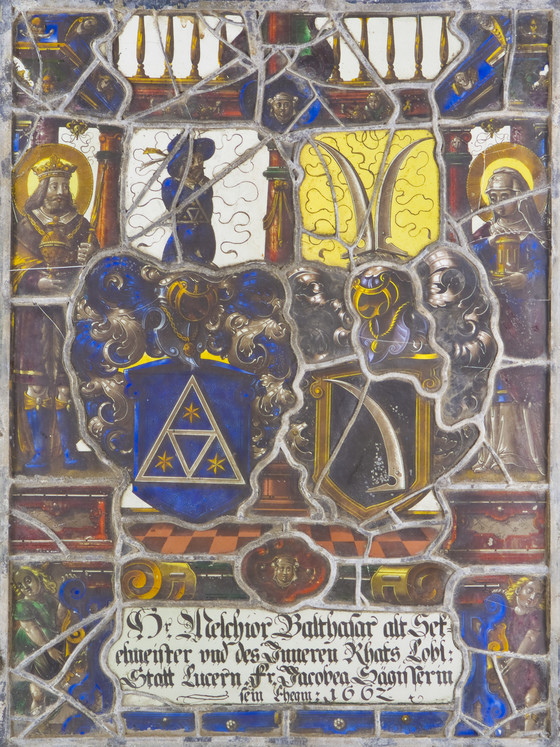 Hr. Melchior Balthasar alt Sek-
elmeister vnd des Inneren Rhats Lobl:
Statt Lucern. Fr. Jacobea Sägisserin
sein Ehegm: 1662